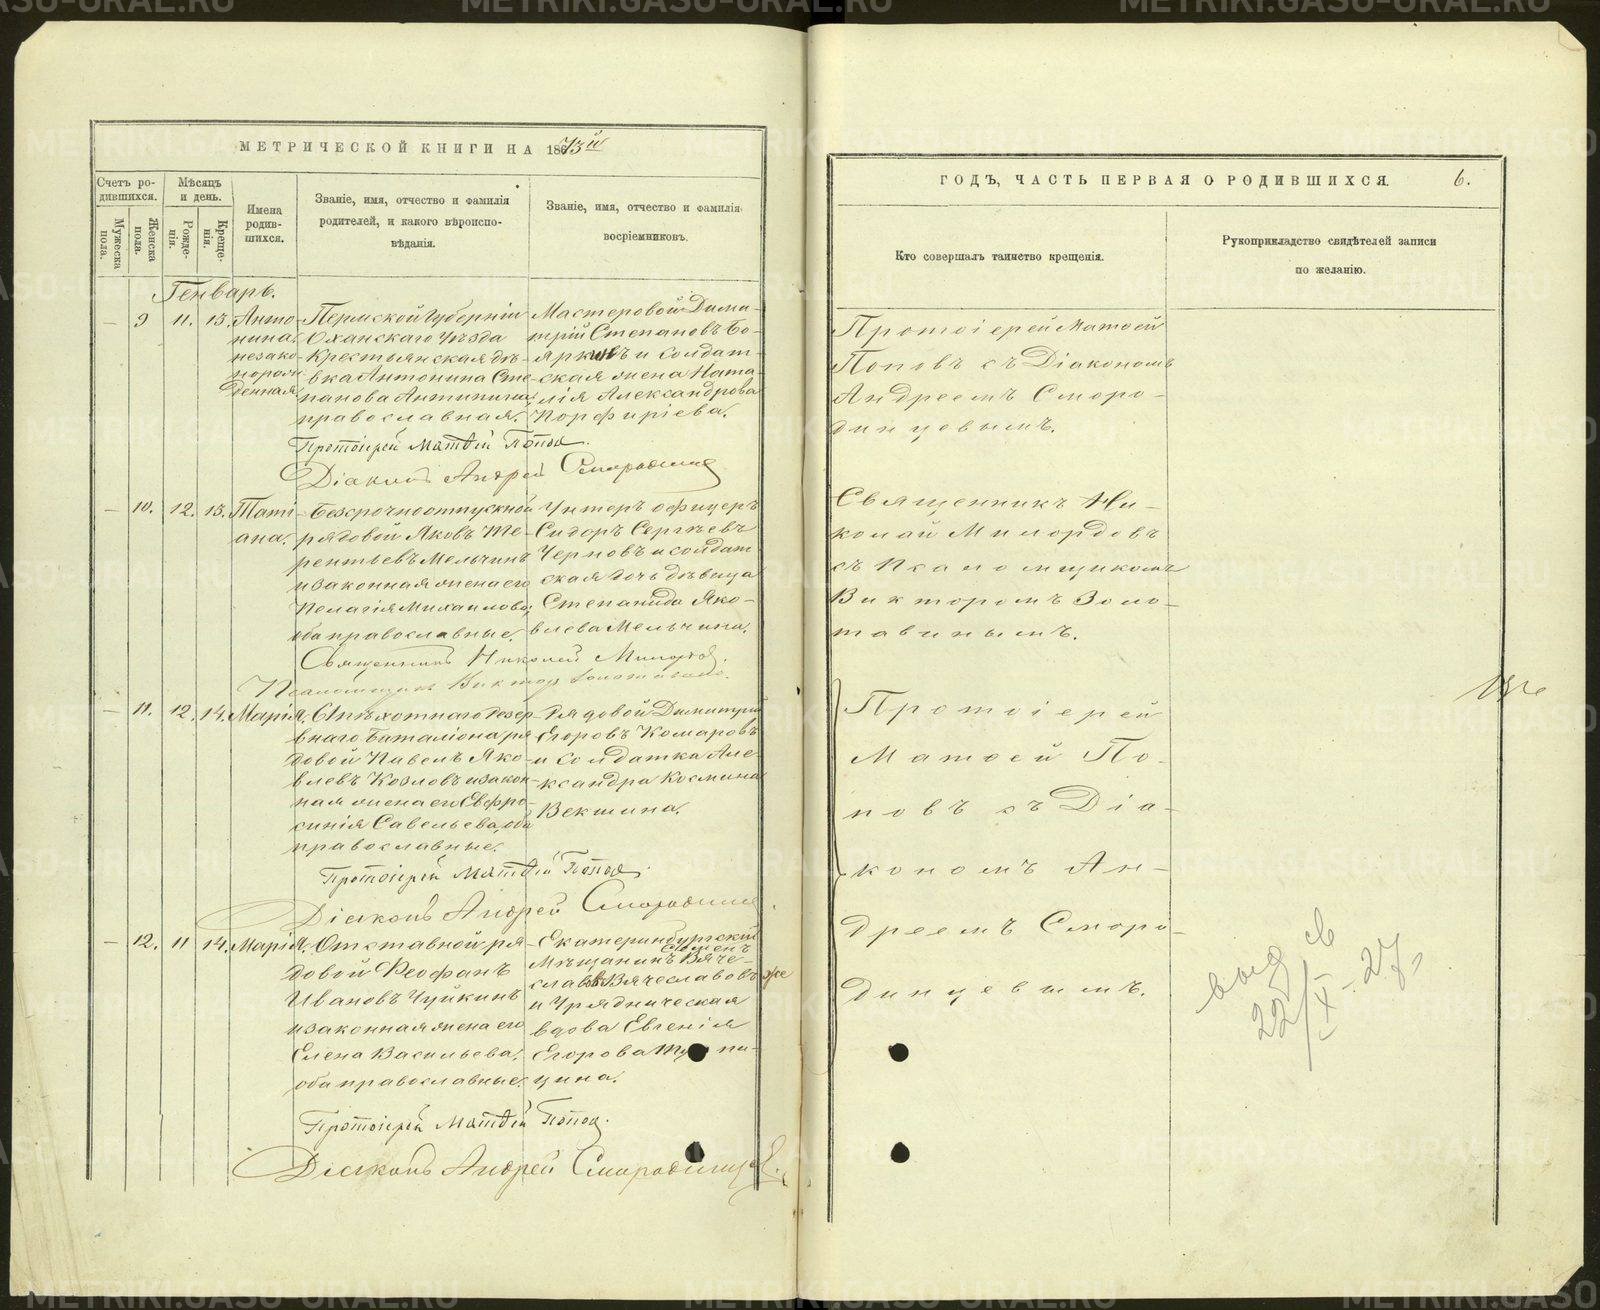 МЕТРИЧЕСКОЙ КНИГИ НА 1873й
Счетъ ро-
дившихся.
Мѣсяцъ
и день.
Мужеска
пола.
Женска
пола.
Рожде-
нія.
Креще-
нія.
Имена
родив-
шихся.
Званіе, имя, отчество и фамилія
родителей, и какого вѣроиспо-
вѣданія.
Званіе, имя, отчество и фамилія
воспріемниковъ.
Генварь.
— 9 11. 13. Анто-
нина,
незако-
норож
денная
Пермской Губерніи
Оханскаго Уѣзда
Крестьянская дѣ-
вка Антонина Сте-
панова Антипина,
православная.
Мастеровой Дими-
трій Степановъ Бо-
яркинъ и солдат-
ская жена Ната-
лія Александрова
Порфиріева.
Протоіерей Матѳій Попов.
Діаконъ Андрей Смородинцев
— 10. 12. 13. Таті-
ана.
Безсрочноотпускной
рядовой Яковъ Те-
рентьевъ Мельчинъ
и законная жена его
Пелагія Михаилова,
оба православные.
Унтеръ офицеръ
Сидоръ Сергѣевъ
Черновъ и солдат-
ская дочь дѣвица
Степанида Яко-
влева Мельчина.
Священникъ Николай Милордов.
Псаломщикъ Виктор Золотавинъ.
— 11. 12. 14. Марія.
Спѣхотнаго резер-
внаго баталіона ря
довой Павелъ Яко-
влевъ Козловъ и закон-
ная жена его Евфро-
синія Савельева, оба
православные.
Рядовой Димитрій
Егоровъ Комаровъ
и солдатка Але-
ксандра Космина
Векшина.
Протоіерей Матѳій Попов.
Діаконъ Андрей Смородинцев
— 12. 11 14. Марія.
Отставной ря-
довой Ѳеофанъ
Ивановъ Чуйкинъ
и законная жена его
Елена Васильева,
оба православные.
Екатеринбургский
Мѣщанинъ Вяче-
славъ Вячеславовъ же
и Урядническая
вдова Евгенія
Егорова пи-
цина.
Протоіерей Матѳій Попов.
Діаконъ Андрей Смородинцев.
ГОДЪ, ЧАСТЬ ПЕРВАЯ О РОДИВШИХСЯ. 6.
Кто совершалъ таинство крещенія.
Рукоприкладство свидѣтелей записи
по желанію.
Протоіерей Матѳей
Поповъ съ Діакономъ
Андреемъ Сморо-
динцевымъ.
Священникъ Ни-
колай Милордовъ
съ Псаломщикомъ
Викторомъ Золо-
тавинымъ.
Протоіерей
Матѳей По-
повъ съ Діа-
кономъ Ан-
дреемъ Сморо-
динцевымъ.
выд св
22/IX-27
METRIKI.GASO-URAL.RU